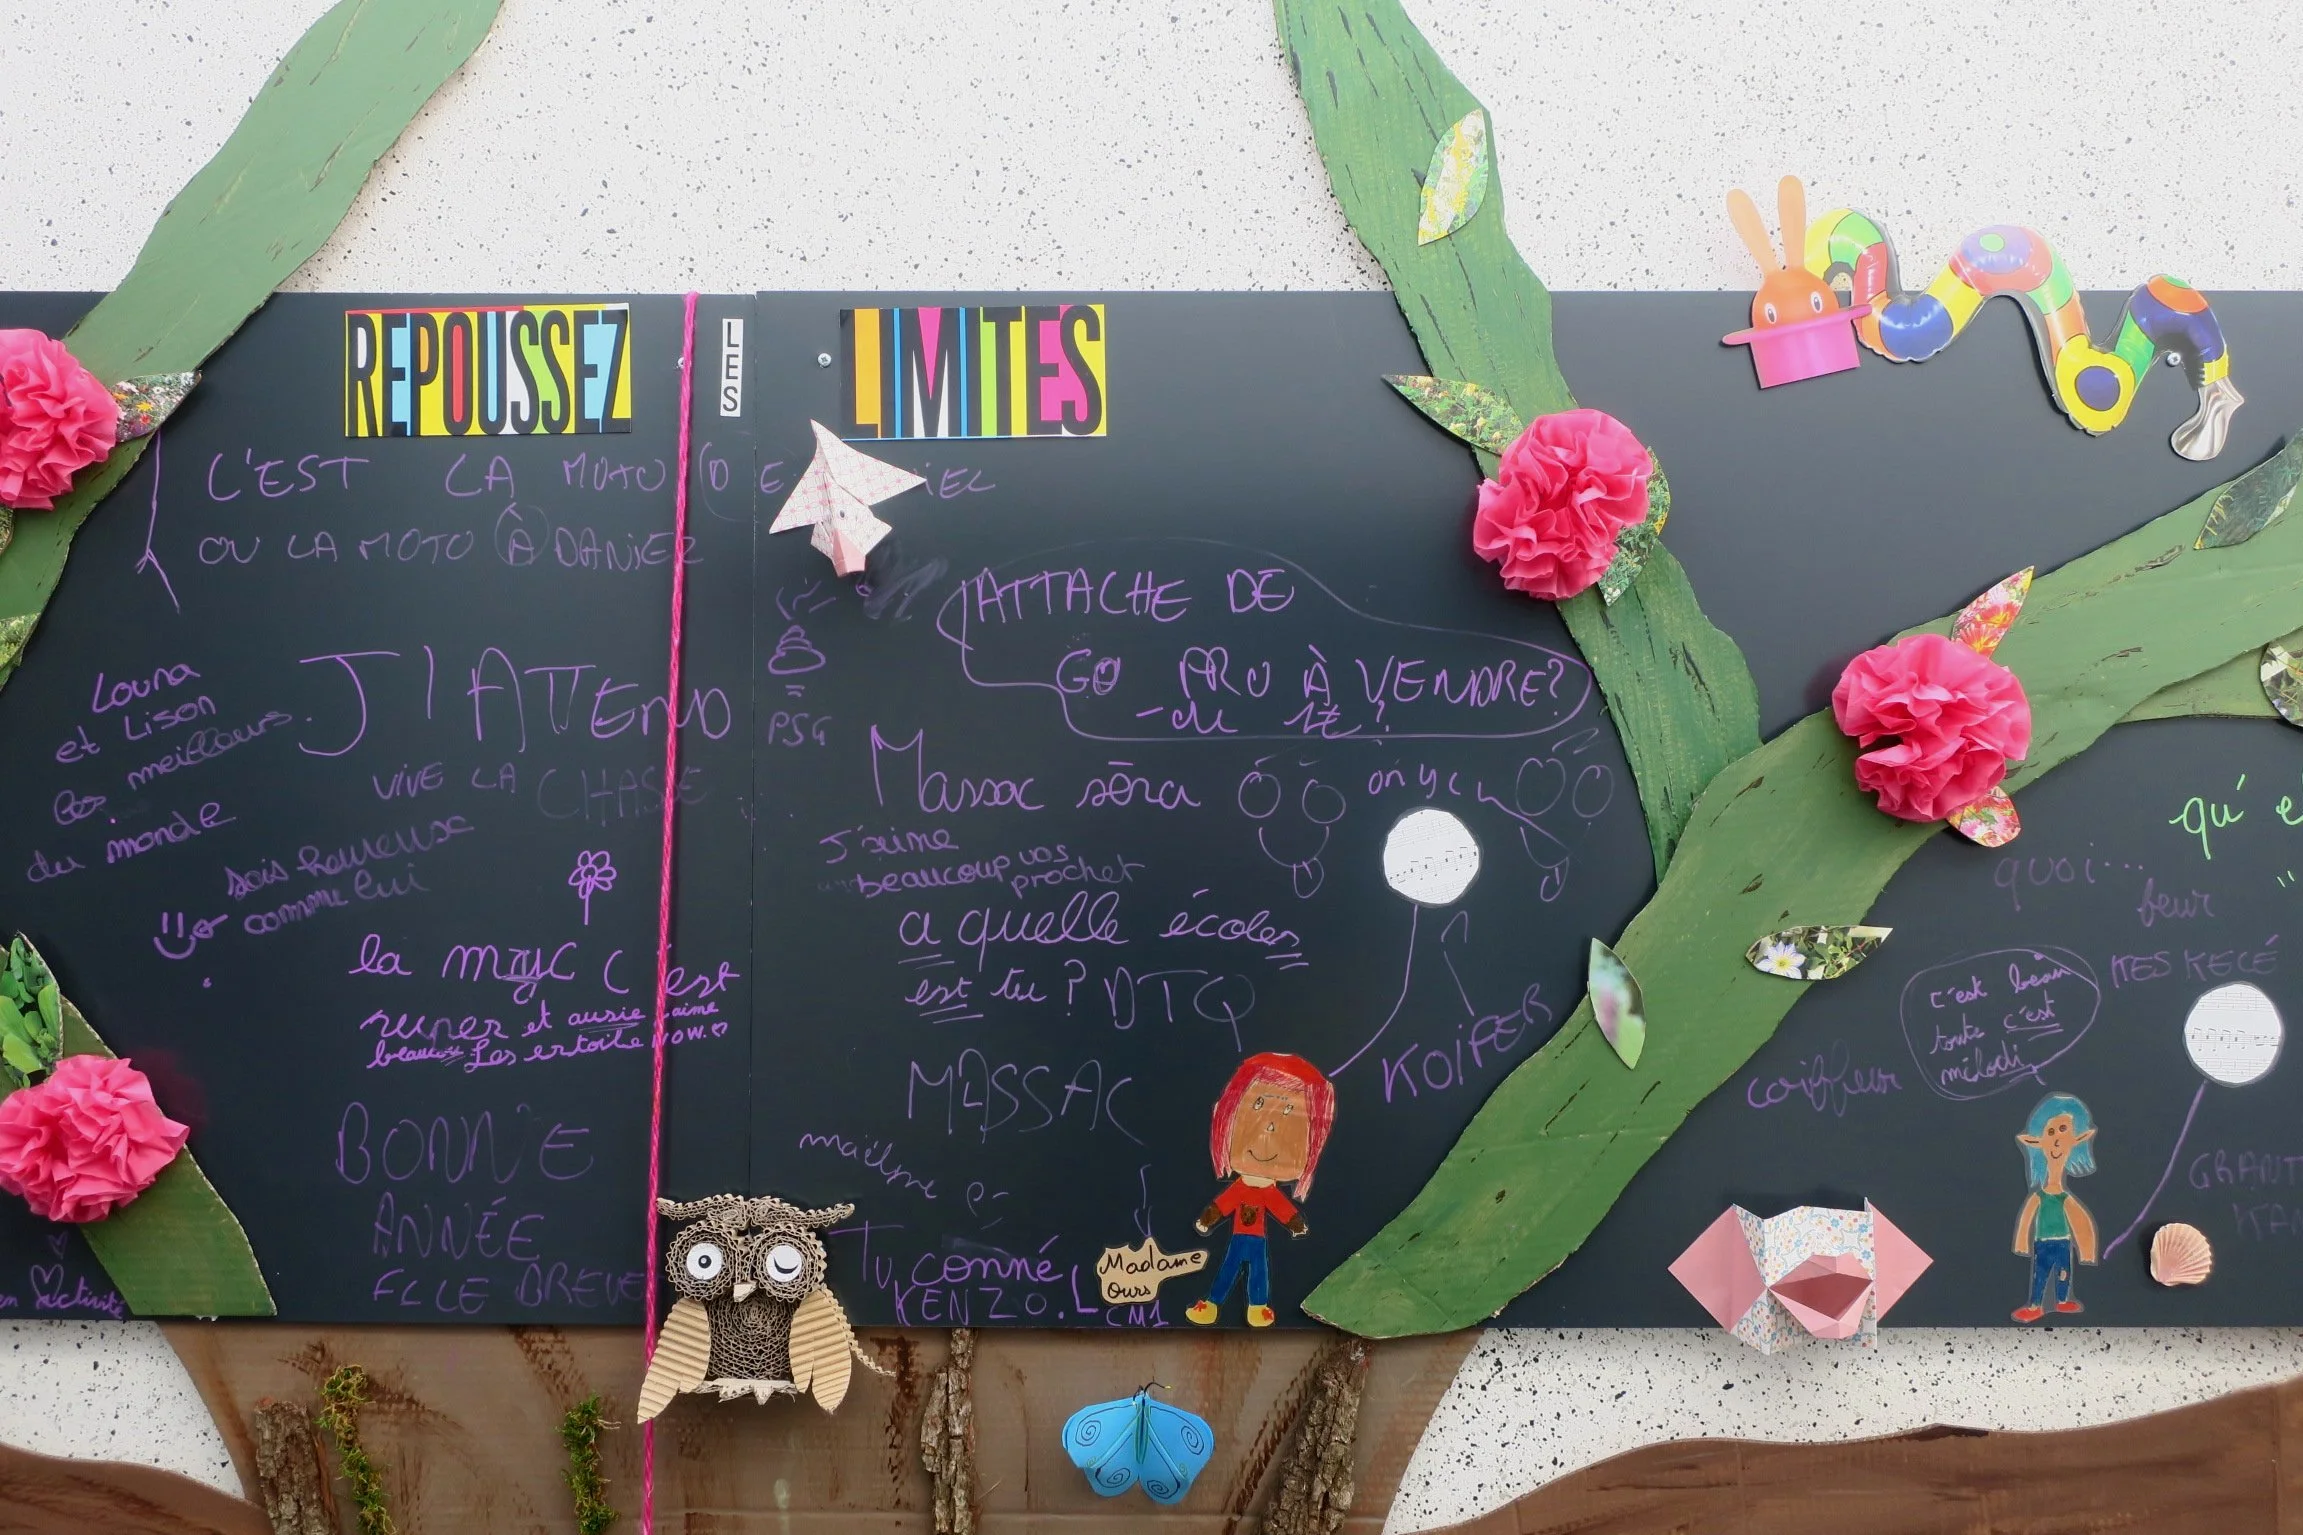 REPOUSSEZ LES LIMITES
C'EST LA MOTO DE
OU LA MOTO À DANIEL
Louna
et Lison
les meilleurs
du monde
J'ATTEND
VIVE LA CHASSE
sois heureuse
comme lui
la MJC c'est
super et aussie j'aime
beaucou les estoile WOW.
BONNE
ANNÉE
ELLE BREVE
en activité
=
PSG
ATTACHE DE
GO PRO À VENDRE?
Massac séra
on y c
J'aime
beaucoup vos
prochet
a quelle écoles
est tu? DTQ
MASSAC
maëlyne
Tu conné
KENZO.L
CM1
Madame
Ours
KOIFER
quoi...
feur
KES KECÉ
c'est beau
toute c'est
mélodi
coiffeur
qu'e
GRANT
KAN